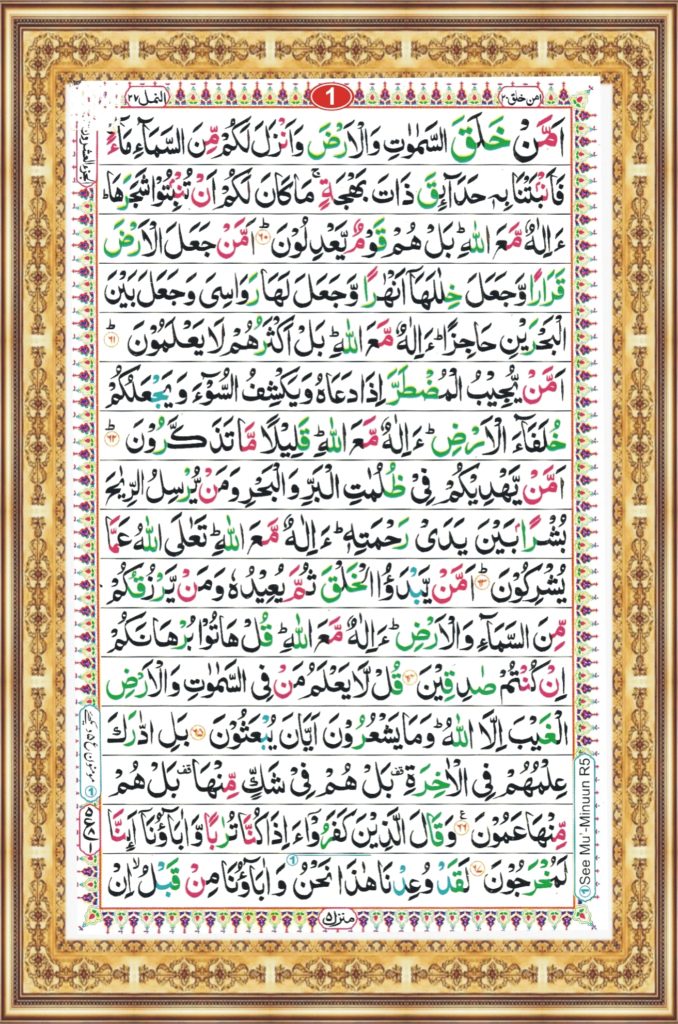 امن خلق ٢٠
1
النمل ٢٧
اَمَّنْ خَلَقَ السَّمٰوٰتِ وَالْاَرْضَ وَاَنْزَلَ لَكُمْ مِّنَ السَّمَآءِ مَآءً ۚ
فَاَنْۢبَتْنَا بِهٖ حَدَآئِقَ ذَاتَ بَهْجَةٍ ۚ مَا كَانَ لَكُمْ اَنْ تُنْۢبِتُوْا شَجَرَهَا ؕ
ءَاِلٰهٌ مَّعَ اللّٰهِ ؕ بَلْ هُمْ قَوْمٌ يَّعْدِلُوْنَ ؕ ٦٠ اَمَّنْ جَعَلَ الْاَرْضَ
قَرَارًا وَّجَعَلَ خِلٰلَهَاۤ اَنْهٰرًا وَّجَعَلَ لَهَا رَوَاسِىَ وَجَعَلَ بَيْنَ
الْبَحْرَيْنِ حَاجِزًا ؕ ءَاِلٰهٌ مَّعَ اللّٰهِ ؕ بَلْ اَكْثَرُهُمْ لَا يَعْلَمُوْنَ ؕ ٦١
اَمَّنْ يُّجِيْبُ الْمُضْطَرَّ اِذَا دَعَاهُ وَيَكْشِفُ السُّوْٓءَ وَيَجْعَلُكُمْ
خُلَفَآءَ الْاَرْضِ ؕ ءَاِلٰهٌ مَّعَ اللّٰهِ ؕ قَلِيْلًا مَّا تَذَكَّرُوْنَ ؕ ٦٢
اَمَّنْ يَّهْدِيْكُمْ فِىْ ظُلُمٰتِ الْبَرِّ وَالْبَحْرِ وَمَنْ يُّرْسِلُ الرِّيٰحَ
بُشْرًۢا بَيْنَ يَدَىْ رَحْمَتِهٖ ؕ ءَاِلٰهٌ مَّعَ اللّٰهِ ؕ تَعٰلَى اللّٰهُ عَمَّا
يُشْرِكُوْنَ ؕ ٦٣ اَمَّنْ يَّبْدَؤُا الْخَلْقَ ثُمَّ يُعِيْدُهٗ وَمَنْ يَّرْزُقُكُمْ
مِّنَ السَّمَآءِ وَالْاَرْضِ ؕ ءَاِلٰهٌ مَّعَ اللّٰهِ ؕ قُلْ هَاتُوْا بُرْهَانَكُمْ
اِنْ كُنْتُمْ صٰدِقِيْنَ ٦٤ قُلْ لَّا يَعْلَمُ مَنْ فِى السَّمٰوٰتِ وَالْاَرْضِ
الْغَيْبَ اِلَّا اللّٰهُ ؕ وَمَا يَشْعُرُوْنَ اَيَّانَ يُبْعَثُوْنَ ٦٥ بَلِ ادّٰرَكَ
عِلْمُهُمْ فِى الْاٰخِرَةِ ۫ بَلْ هُمْ فِىْ شَكٍّ مِّنْهَا ۫ بَلْ هُمْ
مِّنْهَا عَمُوْنَ ٦٦ وَقَالَ الَّذِيْنَ كَفَرُوْۤا ءَاِذَا كُنَّا تُرٰبًا وَّاٰبَآؤُنَاۤ اَئِنَّا
لَمُخْرَجُوْنَ ٦٧ لَقَدْ وُعِدْنَا هٰذَا نَحْنُ وَاٰبَآؤُنَا مِنْ قَبْلُ ۙ اِنْ
1
منزل ٥
1 See Mu'-Minuun R5